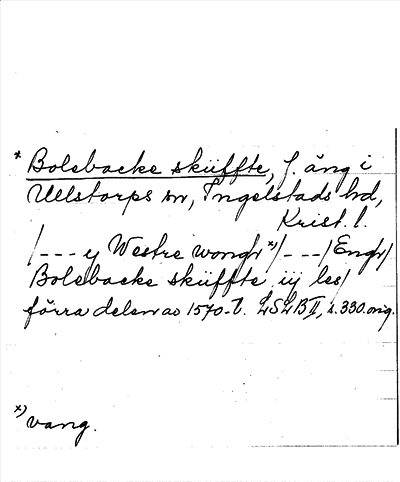 * Bolsbacke skiïffte, f. äng i
Ullstorps sn, Ingelstads hd,
Krist. l.
/--- y Westre wongr *)/---/ Engr/
Bolsbacke skiïffte iij les/
förra delen av 1570-t. LSLB II, s. 330. orig.
*) vang.